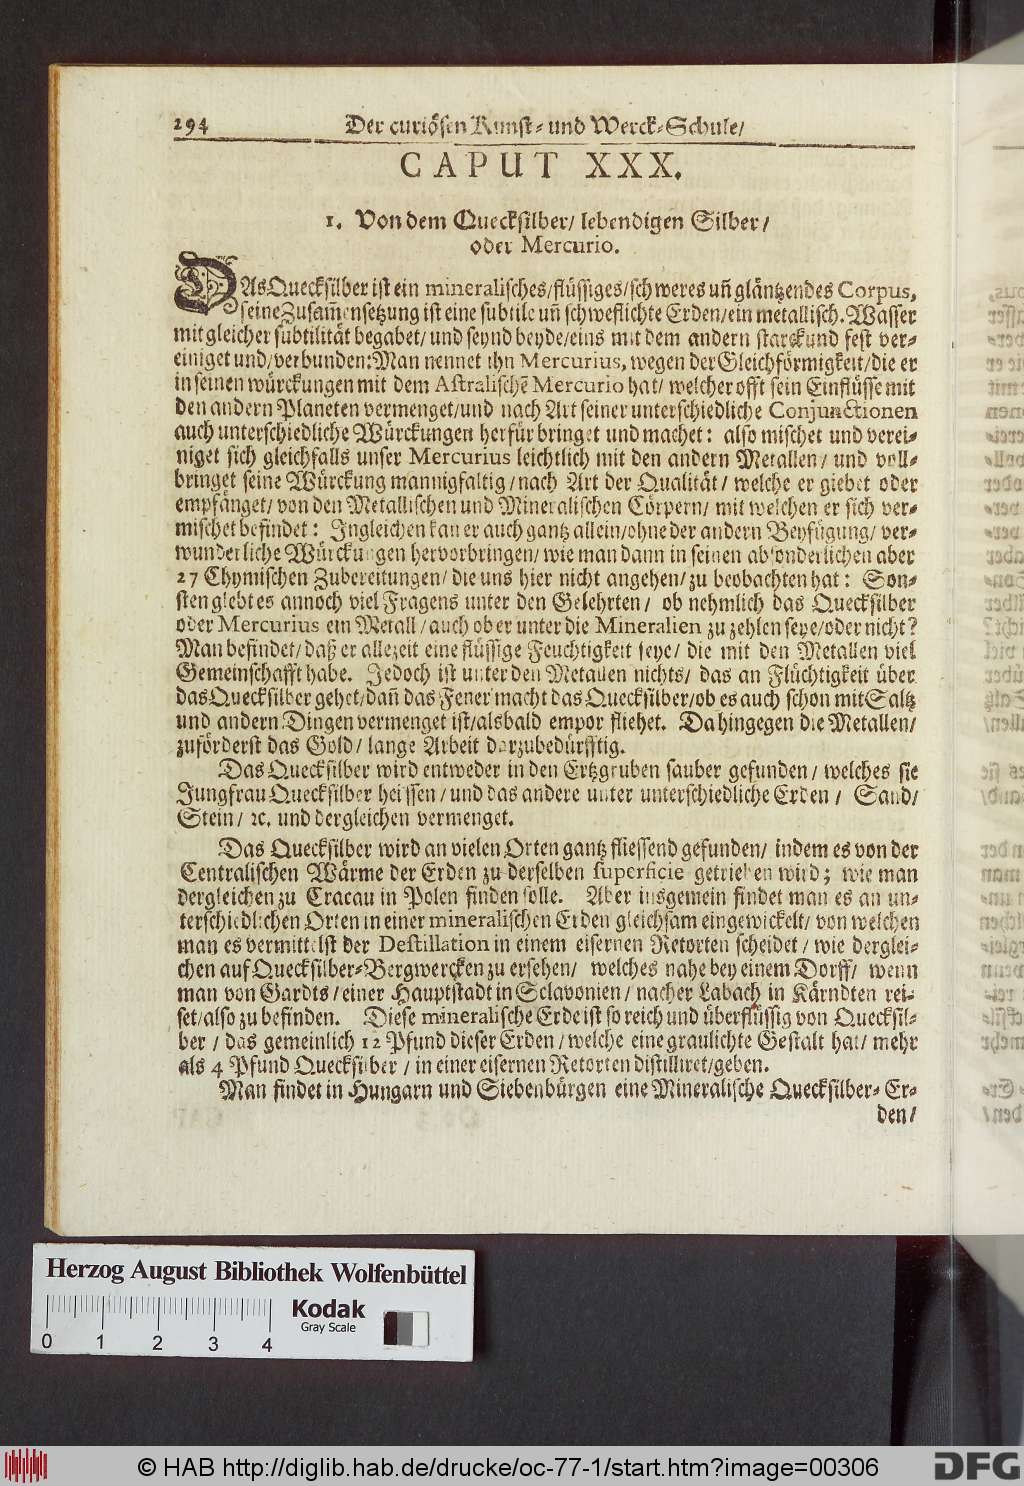 294 Der curiösen Kunst- und Werck-Schule/
CAPUT XXX.
1. Von dem Quecksilber/ lebendigen Silber/
oder Mercurio.
DAs Quecksilber ist ein mineralisches/flüssiges/schweres uñ gläntzendes Corpus,
seine Zusam̃ensetzung ist eine subtile uñ schweflichte Erden/ein metallisch. Wasser
mit gleicher subtilität begabet/ und seynd beyde/eins mit dem andern starck und fest ver-
einiget und/verbunden: Man nennet ihn Mercurius, wegen der Gleichförmigkeit/die er
in seinen würckungen mit dem Astralischẽ Mercurio hat/ welcher offt sein Einflüsse mit
den andern Planeten vermenget/und nach Art seiner unterschiedliche Conjunctionen
auch unterschiedliche Würckungen herfür bringet und machet: also mischet und verei-
niget sich gleichfalls unser Mercurius leichtlich mit den andern Metallen/ und voll-
bringet seine Würckung mannigfaltig/nach Art der Qualität/ welche er giebet oder
empfänget/von den Metallischen und Mineralischen Cörpern/ mit welchen er sich ver-
mischet befindet: Ingleichen kan er auch gantz allein/ohne der andern Beyfügung/ ver-
wunderliche Würckungen hervorbringen/ wie man dann in seinen absonderlichen aber
27 Chymischen Zubereitungen/ die uns hier nicht angehen/zu beobachten hat: Son-
sten giebt es annoch viel Fragens unter den Gelehrten/ ob nehmlich das Quecksilber
oder Mercurius ein Metall/auch ob er unter die Mineralien zu zehlen seye/oder nicht?
Man befindet/daß er allezeit eine flüssige Feuchtigkeit seye/ die mit den Metallen viel
Gemeinschafft habe. Jedoch ist unter den Metallen nichts/ das an Flüchtigkeit über
das Quecksilber gehet/dañ das Fener macht das Quecksilber/ob es auch schon mit Saltz
und andern Dingen vermenget ist/alsbald empor fliehet. Dahingegen die Metallen/
zuförderst das Gold/ lange Arbeit darzubedürfftig.
Das Quecksilber wird entweder in den Ertzgruben sauber gefunden/ welches sie
Jungfrau Quecksilber heissen/und das andere unter unterschiedliche Erden/ Sand/
Stein/ ꝛc. und dergleichen vermenget.
Das Quecksilber wird an vielen Orten gantz fliessend gefunden/ indem es von der
Centralischen Wärme der Erden zu derselben superficie getrieben wird; wie man
dergleichen zu Cracau in Polen finden solle. Aber insgemein findet man es an un-
terschiedlichen Orten in einer mineralischen Erden gleichsam eingewickelt/ von welchen
man es vermittelst der Destillation in einem eisernen Retorten scheidet/ wie derglei-
chen auf Quecksilber-Bergwercken zu ersehen/ welches nahe bey einem Dorff/ wenn
man von Gardts/einer Hauptstadt in Sclavonien/ nacher Labach in Kärndten rei-
set/also zu befinden. Diese mineralische Erde ist so reich und überflüssig von Quecksil-
ber/ das gemeinlich 12 Pfund dieser Erden/welche eine graulichte Gestalt hat/ mehr
als 4 Pfund Quecksilber/ in einer eisernen Retorten distilliret/geben.
Man findet in Hungarn und Siebenbürgen eine Mineralische Quecksilber-Er-
den/
Herzog August Bibliothek Wolfenbüttel
Kodak
Gray Scale
0 1 2 3 4
© HAB http://diglib.hab.de/drucke/oc-77-1/start.htm?image=00306
DFG